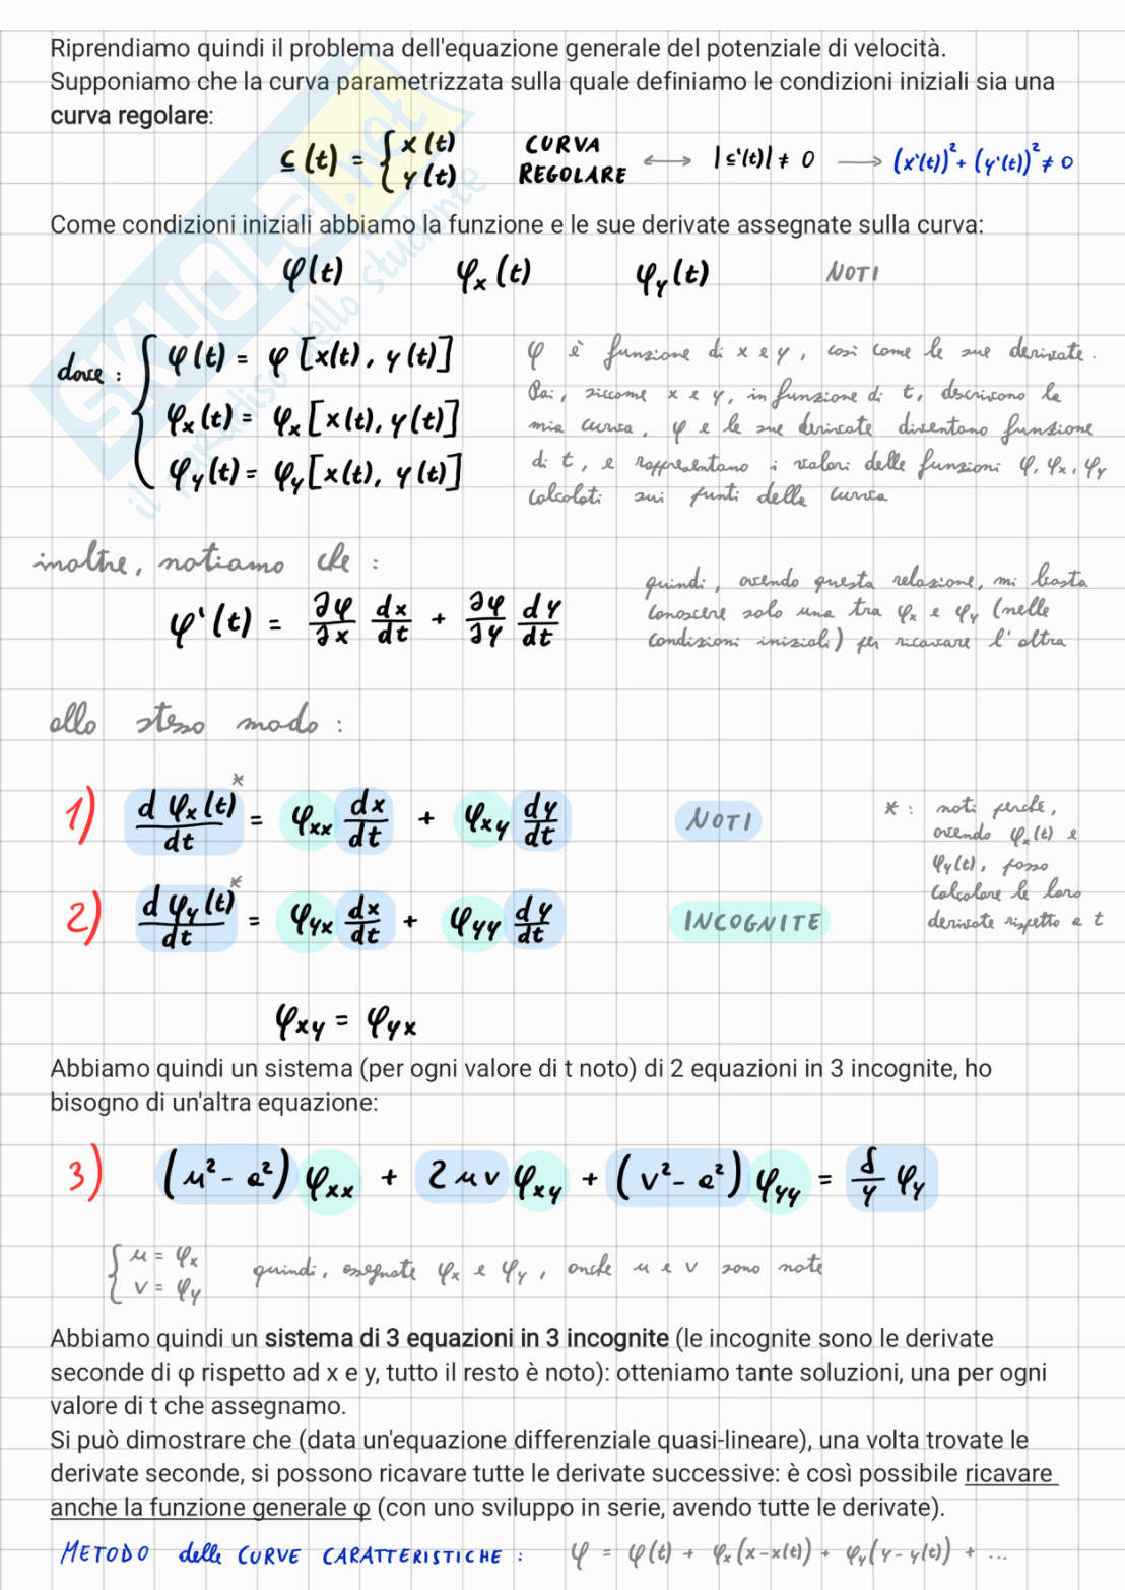 Riprendiamo quindi il problema dell'equazione generale del potenziale di velocità.
Supponiamo che la curva parametrizzata sulla quale definiamo le condizioni iniziali sia una
curva regolare:
c(t) = { x(t) y(t) CURVA REGOLARE ⟷ |c'(t)| ≠ 0 ⟶ (x'(t))² + (y'(t))² ≠ 0
Come condizioni iniziali abbiamo la funzione e le sue derivate assegnate sulla curva:
φ(t) φx(t) φy(t) NOTI
dove: { φ(t) = φ[x(t), y(t)]
φx(t) = φx[x(t), y(t)]
φy(t) = φy[x(t), y(t)]
φ è funzione di x e y, così come le sue derivate.
Poi, siccome x e y, in funzione di t, descrivono la
mia curva, φ e le sue derivate diventano funzione
di t, e rappresentano i valori delle funzioni φ, φx, φy
calcolati sui punti della curva
inoltre, notiamo che:
φ'(t) = ∂φ/∂x dx/dt + ∂φ/∂y dy/dt
quindi, avendo questa relazione, mi basta
conoscere solo una tra φx e φy (nelle
condizioni iniziali) per ricavare l'altra
allo stesso modo:
1) d φx(t)*/dt = φxx dx/dt + φxy dy/dt NOTI
2) d φy(t)*/dt = φyx dx/dt + φyy dy/dt INCOGNITE
* : noti perche,
avendo φx(t) e
φy(t), posso
calcolare le loro
derivate rispetto a t
φxy = φyx
Abbiamo quindi un sistema (per ogni valore di t noto) di 2 equazioni in 3 incognite, ho
bisogno di un'altra equazione:
3) (u² - a²) φxx + 2uv φxy + (v² - a²) φyy = δ/y φy
{ u = φx
v = φy
quindi, assegnate φx e φy, anche u e v sono note
Abbiamo quindi un sistema di 3 equazioni in 3 incognite (le incognite sono le derivate
seconde di φ rispetto ad x e y, tutto il resto è noto): otteniamo tante soluzioni, una per ogni
valore di t che assegnamo.
Si può dimostrare che (data un'equazione differenziale quasi-lineare), una volta trovate le
derivate seconde, si possono ricavare tutte le derivate successive: è così possibile ricavare
anche la funzione generale φ (con uno sviluppo in serie, avendo tutte le derivate).
METODO delle CURVE CARATTERISTICHE : φ = φ(t) + φx(x-x(t)) + φy(y-y(t)) + ...